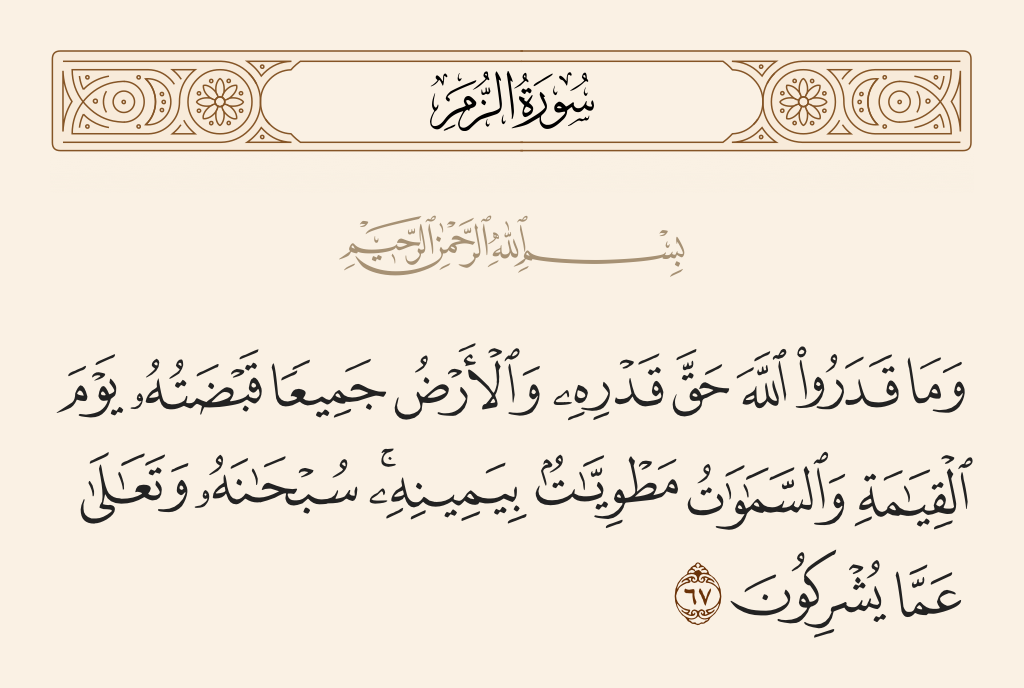 سُورَةُ الزُّمَرِ
بِسْمِ ٱللَّهِ ٱلرَّحْمَٰنِ ٱلرَّحِيمِ
وَمَا قَدَرُوا۟ ٱللَّهَ حَقَّ قَدْرِهِۦ وَٱلْأَرْضُ جَمِيعًا قَبْضَتُهُۥ يَوْمَ
ٱلْقِيَٰمَةِ وَٱلسَّمَٰوَٰتُ مَطْوِيَّٰتٌۢ بِيَمِينِهِۦ ۚ سُبْحَٰنَهُۥ وَتَعَٰلَىٰ
عَمَّا يُشْرِكُونَ ٦٧